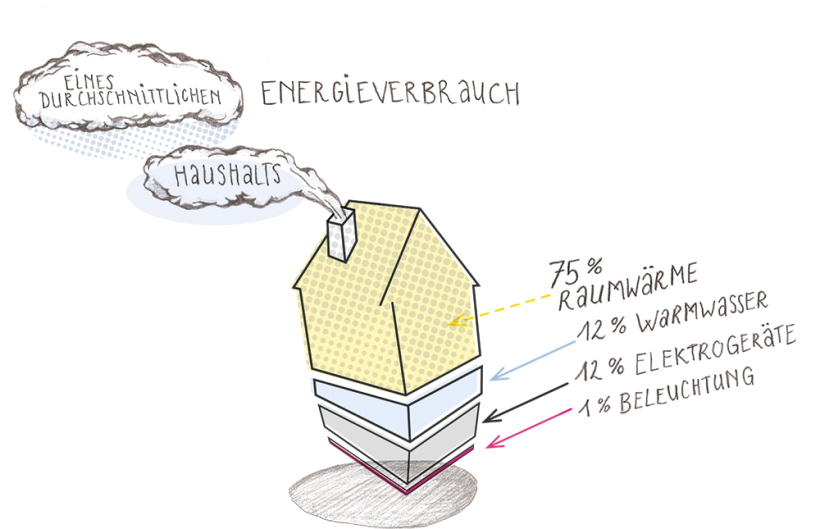 EINES
DURCHSCHNITTLICHEN
ENERGIEVERBRAUCH
HAUSHALTS
75%
RAUMWÄRME
12% WARMWASSER
12% ELEKTROGERÄTE
1% BELEUCHTUNG